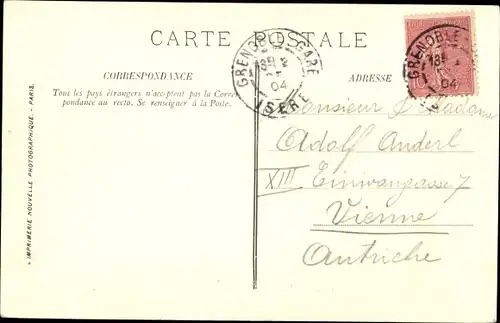 CARTE POSTALE
CORRESPONDANCE
Tous les pays étrangers n'acceptent pas la Corres-
pondance au recto. Se renseigner à la Poste.
ADRESSE
GRENOBLE-GARE
04
ISERE
GRENOBLE
04
Monsieur & Madame
Adolf Anderl
XIII Einwanggasse 7
Vienne
Autriche
* IMPRIMERIE NOUVELLE PHOTOGRAPHIQUE. - PARIS.